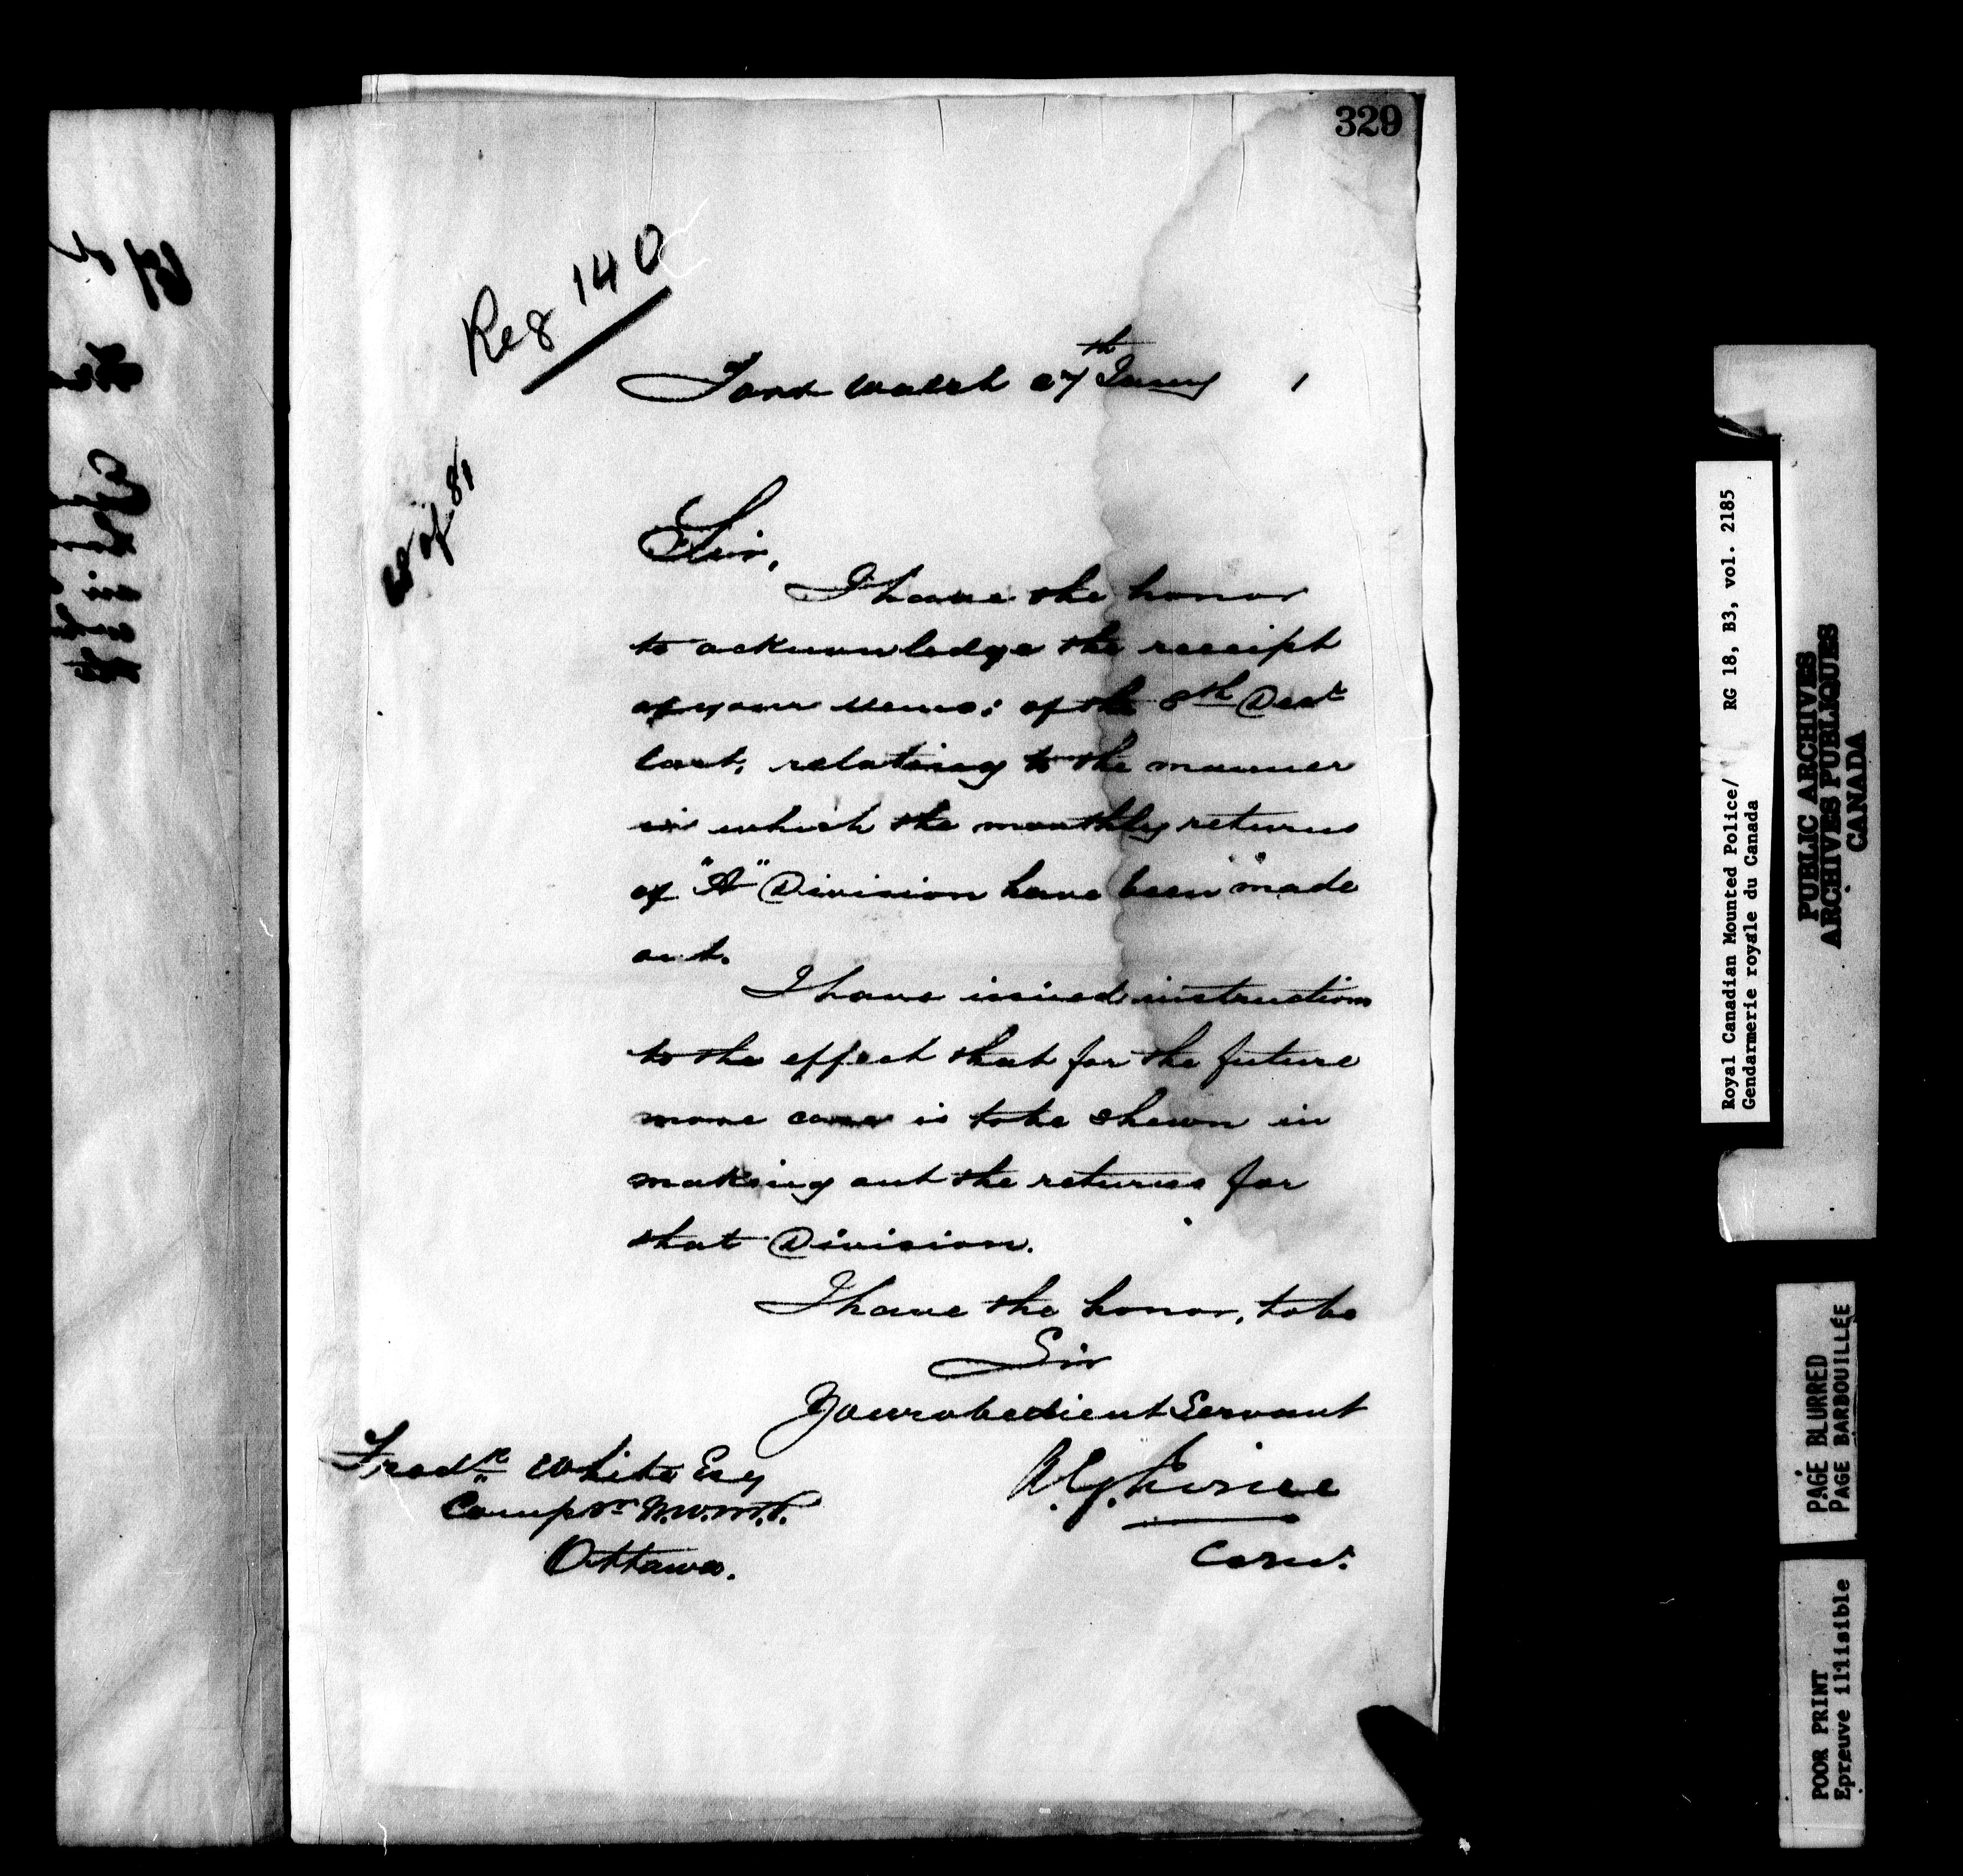 329
Reg 140
Fort Walsh 27th Jany 1
of 81
Sir,
I have the honor
to acknowledge the receipt
of your memo: of the 8th Decr
last, relating to the manner
in which the monthly returns
of "A" Division have been "made
out.
I have issued instructions
to the effect that for the future
more care is to be shewn in
making out the returns for
that Division.
I have the honor, to be
Sir
Your obedient Servant
A.G. Irvine
Comr.
Fredk White Esq
Compr N.W.M.P.
Ottawa.
Royal Canadian Mounted Police/ RG 18, B3, vol. 2185
Gendarmerie royale du Canada
PUBLIC ARCHIVES
ARCHIVES PUBLIQUES
CANADA
PAGE BLURRED
PAGE BARBOUILLÉE
POOR PRINT
Epreuve illisible